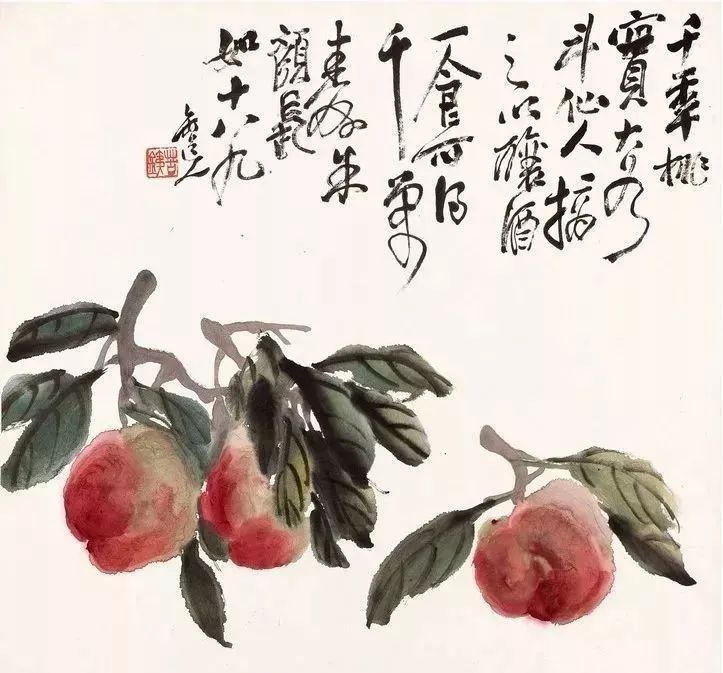 千年桃
實大如
斗仙人摘
之以釀酒
一食可得
千萬
壽朱
顏長
如十八九
缶道人
苦鐵